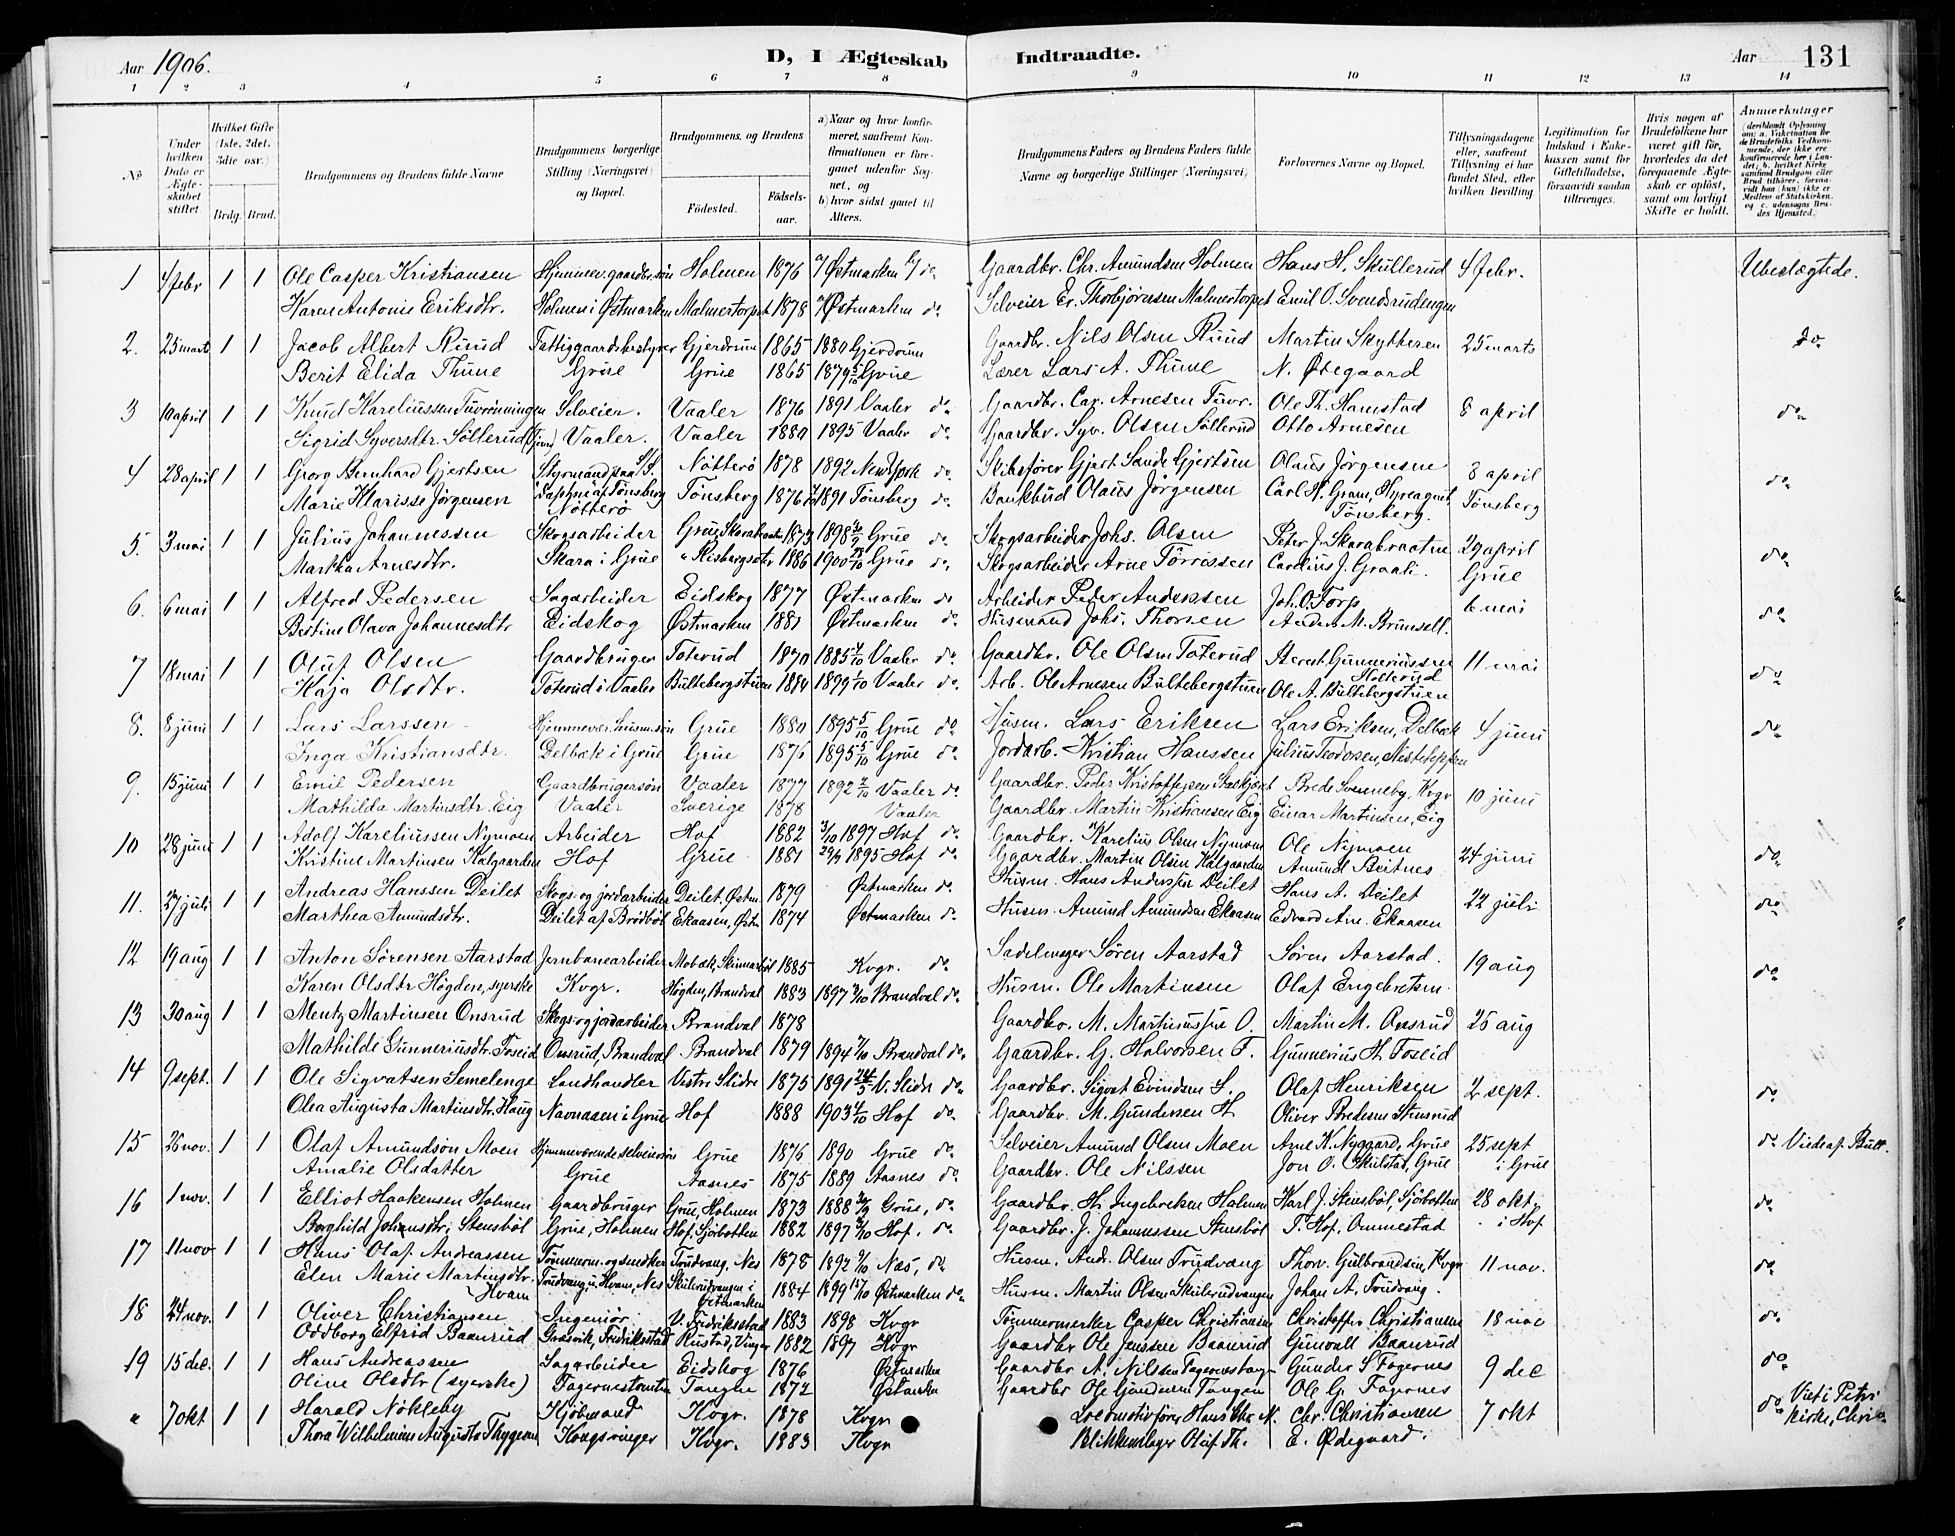 Aar 1906. D, I Ægteskab Indtraadte. Aar 131
1 2 3 4 5 6 7 8 9 10 11 12 13 14
No
Under hvilken Dato er Ægteskabet stiftet.
Hvilket Gifte (1ste, 2det, 3die osv.)
Brdg. Brud.
Brudgommens og Brudens fulde Navne
Brudgommens borgerlige Stilling (Næringsvei) og Bopæl.
Brudgommens og Brudens
Födested. Födselsaar.
a) Naar og hvor konfirmeret, saafremt Konfirmationen er foregaaet udenfor Sognet, og b) hvor sidst gaaet til Alters.
Brudgommens Faders og Brudens Faders fulde Navne og borgerlige Stillinger (Næringsvei)
Forlovernes Navne og Bopæl.
Tillysningsdagene eller, saafremt Tillysning ei har fundet Sted, efter hvilken Bevilling.
Legitimation for Indskud i Enkekassen samt for Giftetilladelse, forsaavidt saadan tiltrænges.
Hvis nogen af Brudefolkene har været gift før, hvorledes da det foregaaende Ægteskab er opløst, samt om lovligt Skifte er holdt.
Anmerkninger
1 4 febr 1 1 Ole Casper Kristiansen Hjemmev. gaardbr.søn Holmen 1876 Østmarken do Gaardbr. Chr. Amundsen Holmen Hans H. Skullerud 4 febr. Ubeslægtede.
Karen Antonie Eriksdtr. Holmen i Østmarken Malmertorpet 1878 Østmarken do Selveier Er. Thorbjørnsen Malmertorpet Emil O. Svendsrudengen
2. 25 marts 1 1 Jacob Albert Ruud Fattiggaardsbestyrer Gjerdrum 1865 1880 Gjerdrum Gaardbr. Nils Olsen Ruud Martin Skytteren 25 marts do
Berit Elida Thune Grue Grue 1865 1879 5/10 Grue Lærer Lars A. Thune N. Ødegaard
3 10 april 1 1 Knud Kareliussen Tuvrønningen Selveier. Vaaler 1876 1891 Vaaler do Gaardbr. Car. Arnesen Tuvr. Ole Th. Hamstad 8 april do
Sigrid Syversdtr. Sölterud Vaaler. Vaaler 1880 1895 Vaaler do Gaardbr. Syv. Olsen Sölterud Otto Arnesen
4 28 april 1 1 Georg Bernhard Gjertsen Styrmand paa S/S. Nötterö 1878 1892 New York do Skibsfører Gjert Sande Gjertsen Olaus Jörgensen 8 april do
Marie Klarisse Jørgensen Daphne af Tønsberg Nötterö Tønsberg 1876 1891 Tønsberg do Bankbud Olaus Jørgensen Carl H. Gram, Tønsberg. Tønsberg
5. 3 mai 1 1 Julius Johannessen Skogsarbeider Grue Skarabraaten 1873 1898 Grue do Skogsarbeider Johs. Olsen Peter J. Skarabraaten 29 april do
Martha Arnesdtr. Skara i Grue 1886 1900 Grue do Skogsarbeider Arne Törrissen Carelius J. Graali. Grue
6. 6 mai 1 1 Alfred Pedersen Sagarbeider Eidskog 1877 Østmarken do Arbeider Peder Andersen Joh. O. Torp 6 mai do
Bertine Olava Johannesdtr Eidskog Østmarken 1881 Østmarken do Husmand Johs. Thorsen Anders M. Brunsell.
7 18 mai 1 1 Oluf Olsen Gaardbruger Toterud 1870 1885 4/10 Vaaler do Gaardbr. Ole Olsen Toterud Gunneriussen Holterud 11 mai do
Kaja Olsdtr. Toterud i Vaaler Bultebergstuen 1884 1899 1/10 Vaaler do Arb. Ole Arnesen Bultebergstuen Ole A. Bultebergstuen
8. 8 juni 1 1 Lars Larssen Hjemmevær. husm.søn Grue 1880 1895 5/10 Grue do Husm. Lars Eriksen Lars Eriksen, Delbæk 4 juni do
Inga Kristiansdtr. Delbæk i Grue Grue 1876 1895 5/10 Grue do Jordarb. Kristian Hanssen Julius Teodorsen,
9. 15 juni 1 1 Emil Pedersen Gaardbrugersøn Vaaler 1877 1892 2/10 Vaaler do Gaardbr. Peder Kristoffersen Brede Svenneby, Kvgr 10 juni
Mathilda Martinsdtr. Eig Vaaler Sverige 1878 Vaaler Gaardbr. Martin Kristiansen Eig Einar Martinsen, Eig
10 28 juni 1 1 Adolf Kareliussen Nymoen Arbeider Hof 1882 3/10 1897 Hof do Gaardbr. Karelius Olsen Nymoen Ole Nymoen 24 juni do
Kristine Martinsen Kalgaarden Hof Grue 1881 1895 Hof do Gaardbr. Martin Olsen Kalgaarden Amund Beitnes
11. 27 juli 1 1 Andreas Hanssen Deilet Skogs- og jordarbeider Deilet, Østm 1879 Østmarken do Husm. Hans Anderssen Deilet Hans A. Deilet 22 juli do
Marthea Amundsdtr. Deilet af Brödböl Ekaasen, Østm 1874 Østmarken do Husm. Amund Amundsen Ekaasen Edvard Am. Ekaasen
12 19 aug 1 1 Anton Sörensen Aarstad Jernbanearbeider 1885 Kvgr. do Sadelmager Søren Aarstad Søren Aarstad. 19 aug do
Karen Olsdtr Högden, syerske Kvgr. Högden, Brandval 1883 1897 3/10 Brandval do Husm. Ole Martinsen Olaf Engebretsen
13 30 aug 1 1 Mentz Martinsen Onsrud Skogs- og jordarbeider Brandval 1878 Gaardbr. M. Martinussen O. Martin M. Onsrud 26 aug
Mathilde Gunneriusdtr. Foseid Onsrud, Brandval Brandval 1879 1894 7/10 Brandval do Gaardbr. G. Halvorsen F. Gunnerius H. Foseid
14 9 sept. 1 1 Ole Sigvatsen Semelenge Landhandler Vestre Slidre 1875 1891 24/5 V. Slidre do Gaardbr. Sigvat Evindsen S. Olaf Henriksen 2 sept. do
Olea Augusta Martinsdtr. Haug Navnaasen i Grue Hof 1888 1903 4/10 Hof do Gaardbr. M. Gundersen H Oliver Bredesen Stensrud
15 26 nov. 1 1 Olaf Amundsön Moen Hjemmeværende selveiersøn Grue 1876 1890 Grue do Selveier Amund Olsen Moen Arne K. Nyggard, Grue 25 sept do Viede af Bull.
Amalie Olsdatter Grue Aasnes 1875 1889 Aasnes do Gaardbr. Ole Nilssen Jon O. Skulstad, Grue i Grue
16 1 nov. 1 1 Elliot Haakensen Holmen Gaardbruger Grue, Holmen 1873 1888 Grue, do Gaardbr. H. Ingebretsen Holmen Karl J. Stensböl, Sjörbotten 28 okt. do
Borghild Johansdtr. Stensböl Grue, Holmen Hof. Sjörbotten 1882 1897 Hof, do Gaardbr. J. Johannessen Stensböl T. Hof, Ommestad i Hof
17 11 nov 1 1 Hans Olaf Andreassen Tømmerm. og snedker Trudvang, Nes 1878 1892 2/10 Næs, do Husm. And. Olsen Trudvang Thorv. Gulbrandsen, Kvgr 11 nov. do
Elen Marie Martinsdtr. Hvam Trudvang u. Hvam, Nes Skulerudvangen i Østmarken 1884 1899 Østmarken do Husm. Martin Olsen Skulerudvangen Johan A. Trudvang.
18 24 nov. 1 1 Oliver Christiansen Ingeniør V. Fredriksstad 1883 1898 Kvgr Tömmermerker Casper Christiansen Christoffer Christiansen 18 nov do
Oddborg Elfrid Baanrud Gresvik, Fredriksstad Rustad, Vinger 1882 1897 Kvgr Gaardbr Ole Jenssen Baanrud Gunvald Baanrud
19 15 dec. 1 1 Hans Andreassen Sagarbeider Eidskog 1876 Østmarken Gaardbr A. Nilsen Gunder S Fagernes 9 dec do
Oline Olsdtr (syerske) Fagernestomten Tangen 1872 Østmarken Gaardbr Ole Gundersen Tangen Ole G. Fagernes
" 7 okt 1 1 Harald Nökleby Kjöbmand Kvgr. 1878 Kvgr Locomotivfører Hans Chr. N. Chr. Christiansen 7 okt do Viet i Petri Kirke, Chria
Thora Wilhelmine Augusta Thygesen Kongsvinger Kvgr. 1883 Kvgr Blikkenslager Oluf Th. E. Ødegaard.